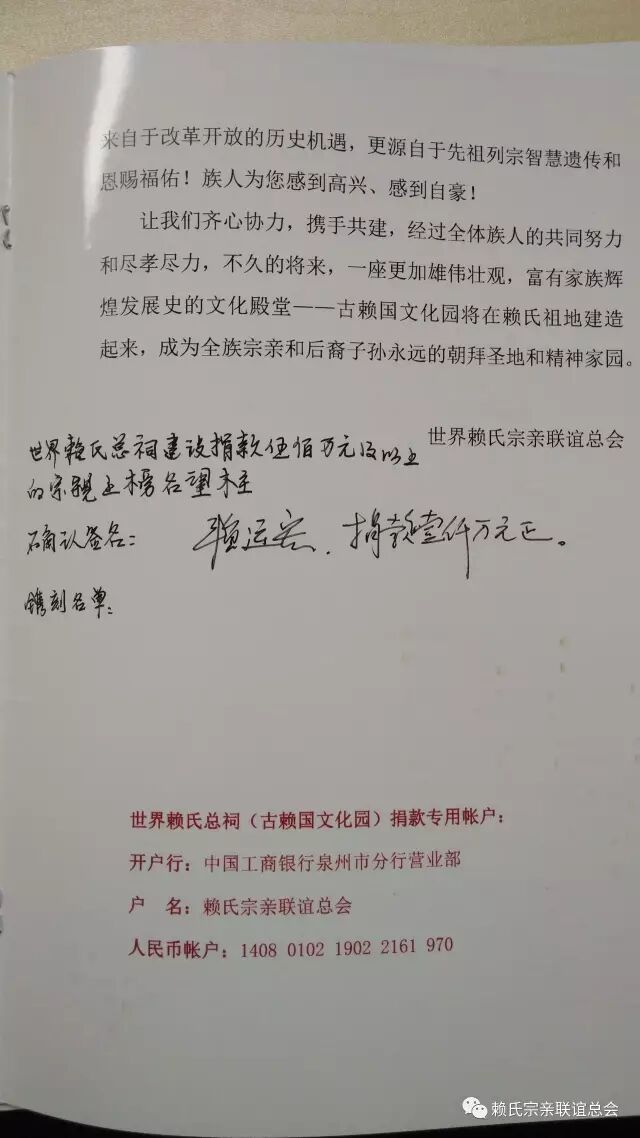 来自于改革开放的历史机遇，更源自于先祖列宗智慧遗传和
恩赐福佑！族人为您感到高兴、感到自豪！
让我们齐心协力，携手共建，经过全体族人的共同努力
和尽孝尽力，不久的将来，一座更加雄伟壮观，富有家族辉
煌发展史的文化殿堂——古赖国文化园将在赖氏祖地建造
起来，成为全族宗亲和后裔子孙永远的朝拜圣地和精神家园。
世界赖氏宗亲联谊总会
世界赖氏总祠建设捐款伍佰万元及以上
的宗親上榜名望柱
确认签名：
捐款壹仟万元正。
镌刻名单：
世界赖氏总祠（古赖国文化园）捐款专用帐户：
开户行：中国工商银行泉州市分行营业部
户 名：赖氏宗亲联谊总会
人民币帐户：1408 0102 1902 2161 970
赖氏宗亲联谊总会